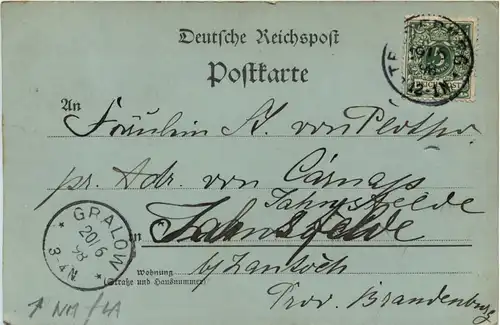 Deutsche Reichspost
Postkarte
19/6
98
12-1N
An
Fräulein A. von Plotho
pr. Adr. von Carnap
Jahnsfelde
in Jahnsfelde
GRALOW
20/6
98
3-4N
Wohnung
(Straße und Hausnummer)
b/ Zantoch
Prov. Brandenburg